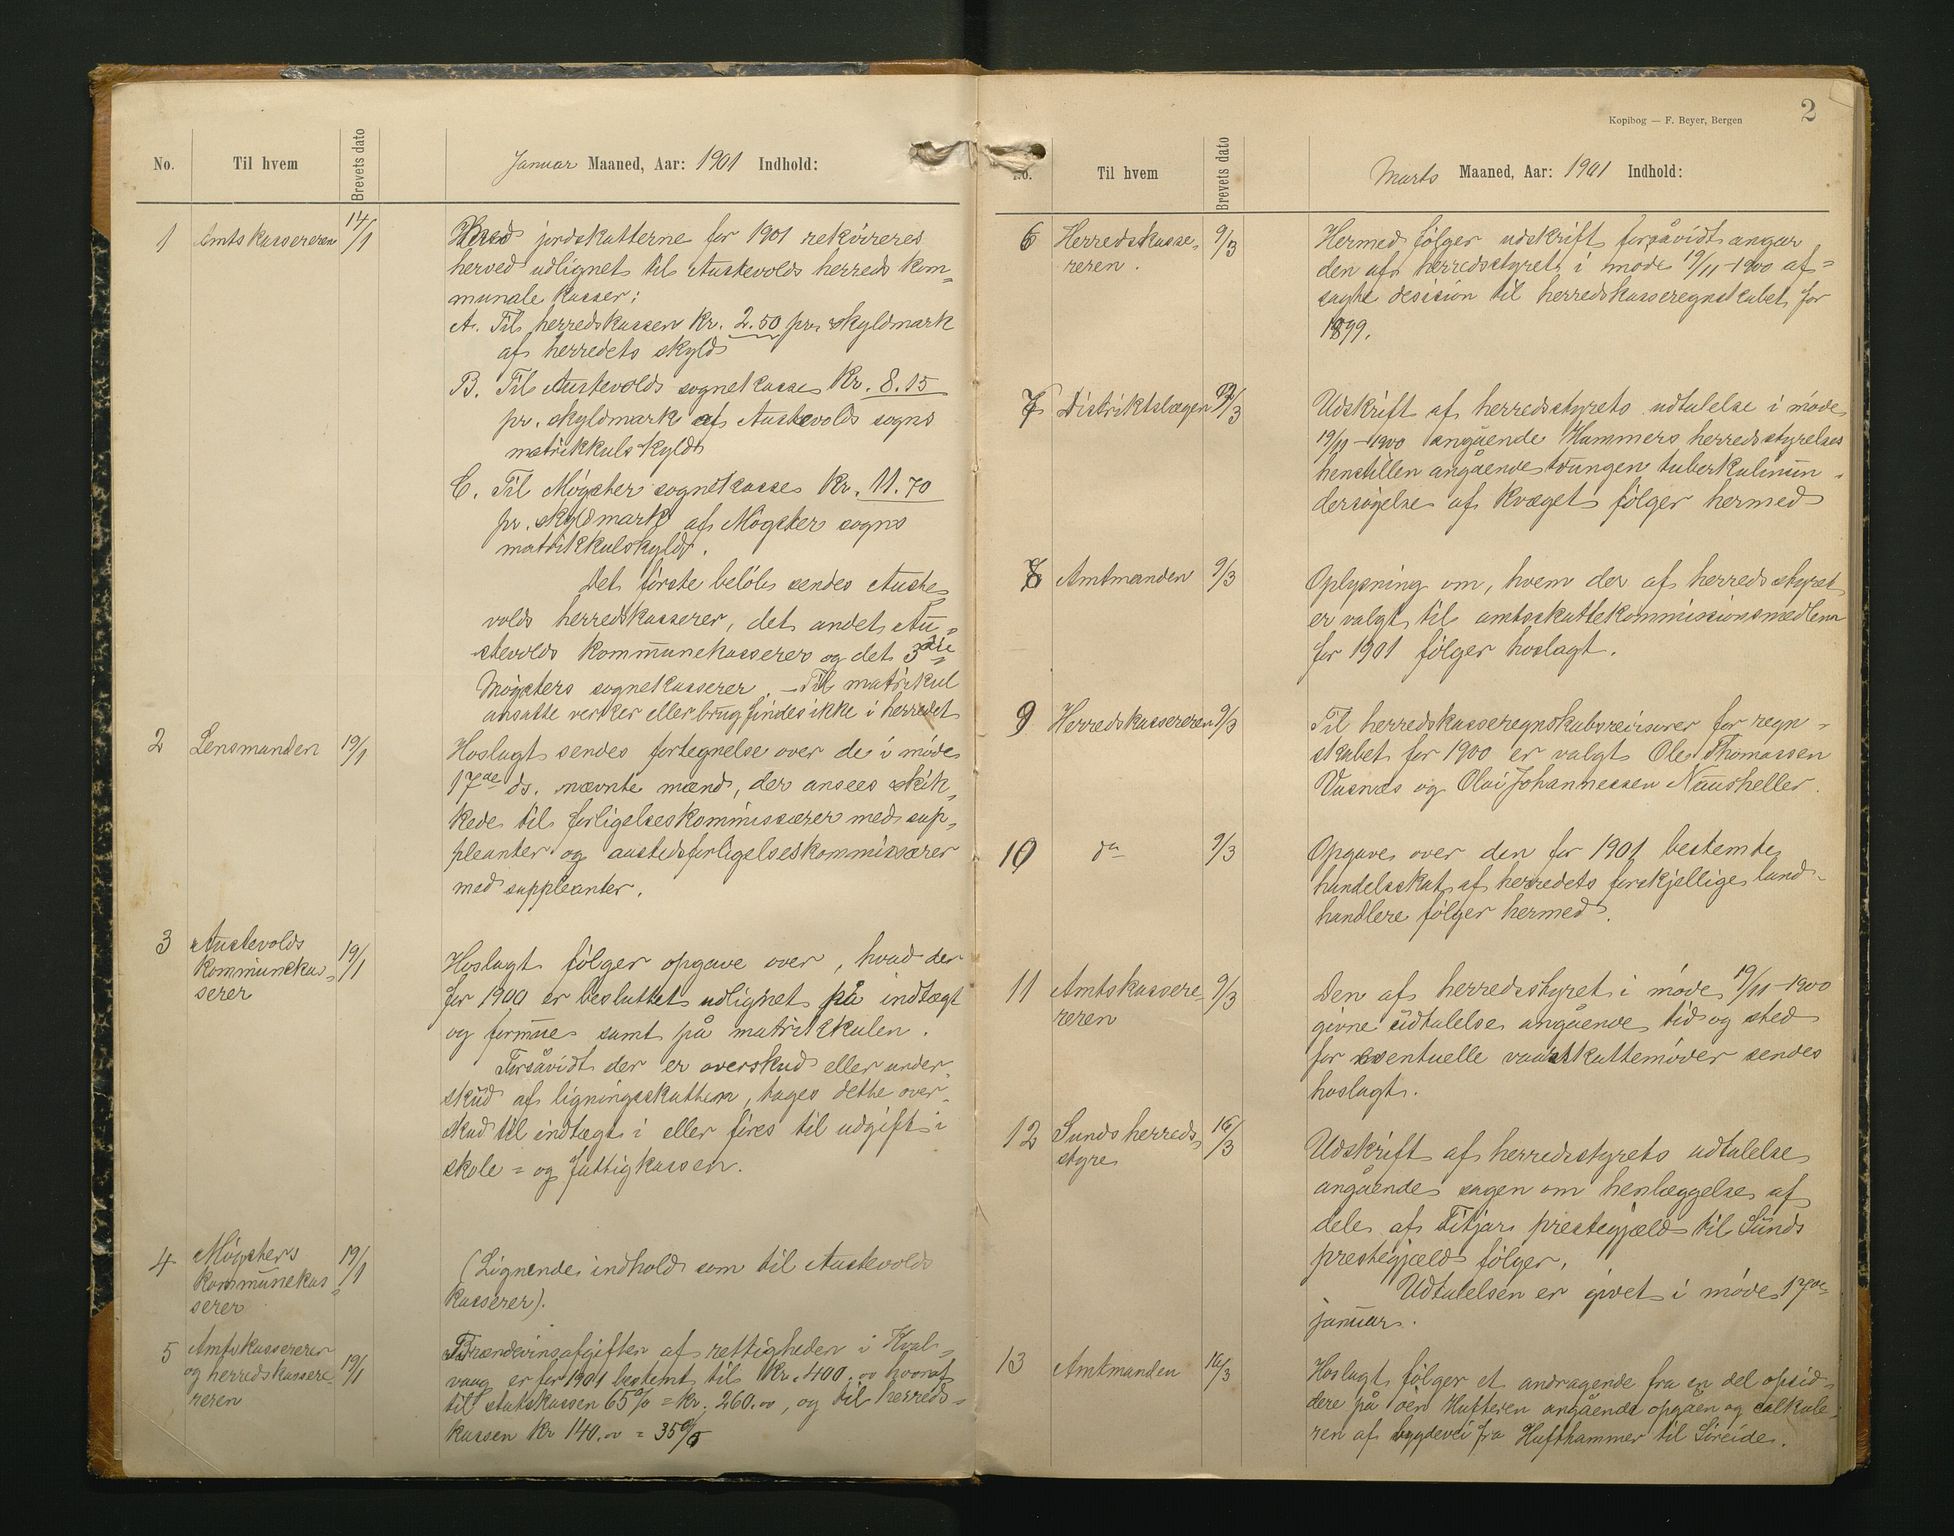 No.
Til hvem
Brevets dato
Januar Maaned, Aar: 1901 Indhold:
1 Amtskassereren 14/1
jordskatterne for 1901 rekvireres
herved udlignet til Austevolds herreds kom-
munale kasser:
A. Til herredskassen kr. 2.50 pr. skyldmark
af herredets skyld
B. Til Austevolds sognekasse Kr. 8.15
pr. skyldmark af Austevolds sogns
matrikkulskyld
C. Til Møgster sognekasse Kr. 11.70
pr. skyldmark af Møgster sogns
matrikkulskyld.
Det første beløb sendes Auste-
volds herredskasserer, det andet Au-
stevolds kommunekasserer og det 3die
Møgsters sognekasserer. – Til matrikul
ansatte verker eller brug findes ikke i herredet
2 Lensmanden 19/1
Hoslagt sendes fortegnelse over de i møde
17de ds. nævnte mænd, der ansees skik-
kede til forligelseskommissærer med sup-
pleanter og austedsforligelseskommissærer
med suppleanter.
3 Austevolds
kommunekas-
serer 19/1
Hoslagt følger opgave over, hvad der
for 1900 er besluttet udlignet på indtægt
og formue samt på matrikkulen.
Forsåvidt der er overskud eller under-
skud af ligningsskatten, tages dette over-
skud til indtægt i eller føres til udgift i
skole = og fattigkassen.
4 Møgsters
kommunekas-
serer 19/1
(Lignende indhold som til Austevolds
kasserer).
5 Amtskassereren
og herredskasse-
reren 19/1
Brændevinsafgiften af rettigheden i Kval-
vaag er for 1901 bestemt til Kr. 400.00 hvoraf
til statskassen 65% = kr. 260.00, og til herreds-
kassen Kr 140.00 = 35%
2
Kopibog — F. Beyer, Bergen
No.
Til hvem
Brevets dato
Marts Maaned, Aar: 1901 Indhold:
6 Herredskasse-
reren. 9/3
Hermed følger udskrift forsåvidt angår
den af herredsstyret i møde 19/11-1900 af-
sagte desision til herredskasseregnskabet for
1899.
7 Distriktslægen 9/3
Udskrift af herredsstyrets udtalelse i møde
19/11-1900 angående Hammers herredsstyrelses
henstillen angående tvungen tuberkulinun-
dersøgelse af kvæget følger hermed
8 Amtmanden 9/3
Oplysning om, hvem der af herredsstyret
er valgt til amtsskattekommissionsmedlem
for 1901 følger hoslagt.
9 Herredskassereren 9/3
Til herredskasseregnskabsrevisorer for regn-
skabet for 1900 er valgt Ole Thomassen
Vasnes og Olai Johannessen Naustheller.
10 do 9/3
Opgave over den for 1901 bestemte
handelsskat af herredets forskjellige land-
handlere følger hermed.
11 Amtskasse-
reren 9/3
Den af herredsstyret i møde 19/11-1900
givne udtalelse angående tid og sted
for eventuelle vaarskattemøder sendes
hoslagt.
12 Sunds herreds-
styre 16/3
Udskrift af herredsstyrets udtalelse
angående sagen om henlæggelse af
dele af Fitjar prestegjæld til Sunds
prestegjæld følger.
Udtalelsen er givet i møde 17de
januar.
13 Amtmanden 16/3
Hoslagt følger et andragende fra en del opsid-
dere på øen Huftøren angående opgåen og kalkule-
ren af bygdevei fra Hufthammer til Søreide.